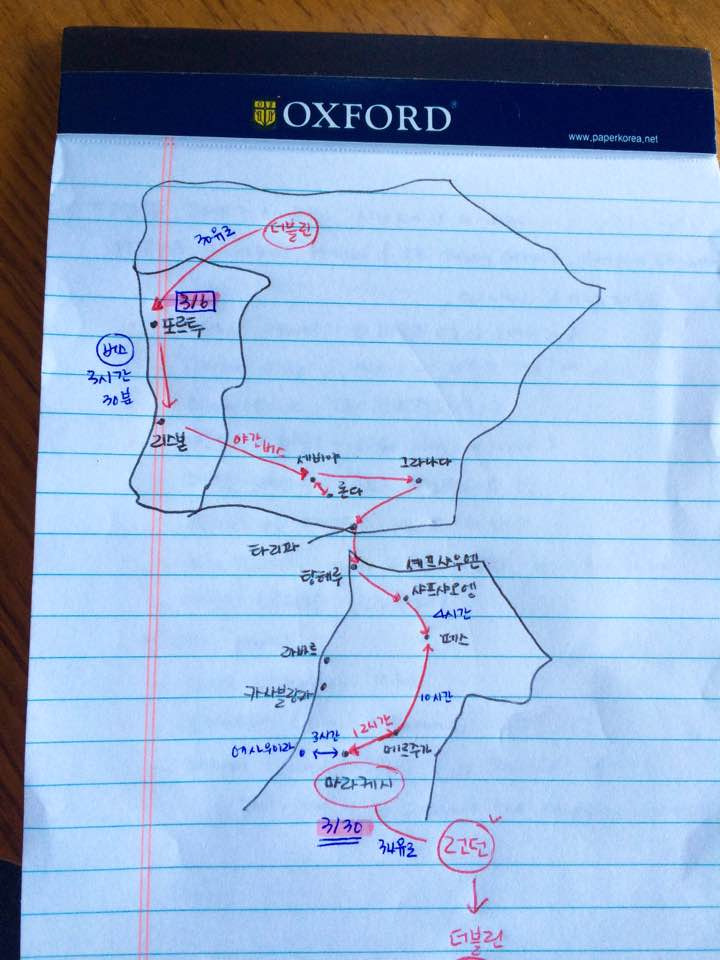 OXFORD
www.paperkorea.net
더블린
30유로
3/6
포르투
버스
3시간
30분
리스본
야간버스
세비야
그라나다
론다
타리파
탕헤루
셰프샤우엔
샤프샤오엔
4시간
페스
라바트
카사블랑카
10시간
12시간
3시간
에사우이라
메르주가
마라케시
3/30
34유로
런던
더블린